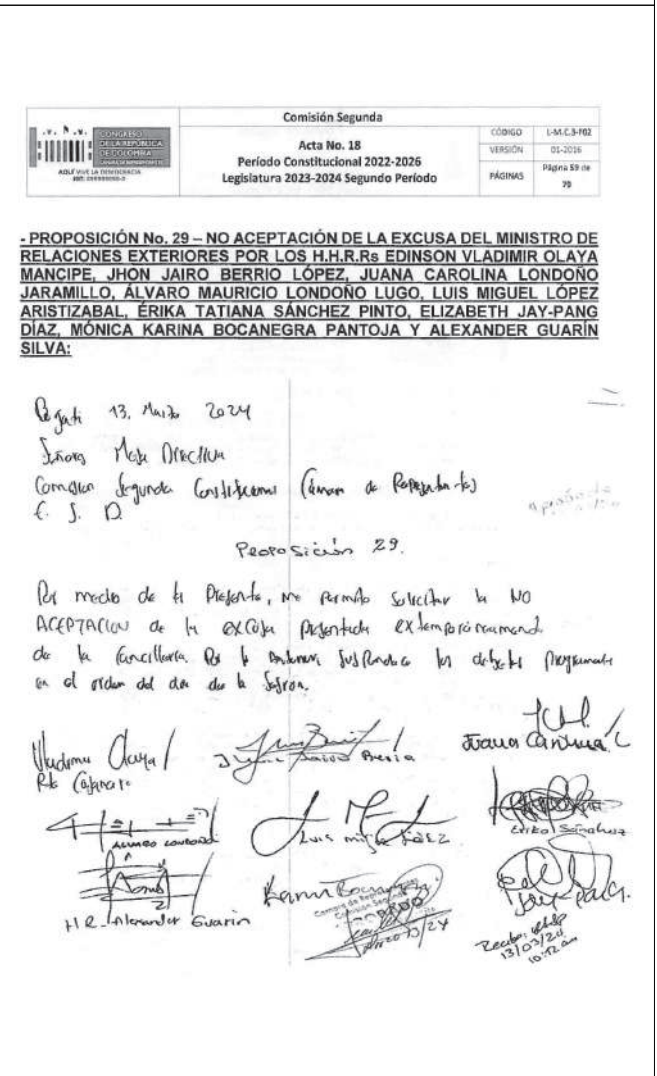 CONGRESO
DE LA REPÚBLICA
DE COLOMBIA
CÁMARA DE REPRESENTANTES
AQUÍ VIVE LA DEMOCRACIA
Comisión Segunda
Acta No. 18
Período Constitucional 2022-2026
Legislatura 2023-2024 Segundo Período
CÓDIGO L-M.C.3-F02
VERSIÓN 01-2016
PÁGINAS Página 59 de
70
- PROPOSICIÓN No. 29 – NO ACEPTACIÓN DE LA EXCUSA DEL MINISTRO DE
RELACIONES EXTERIORES POR LOS H.H.R.Rs EDINSON VLADIMIR OLAYA
MANCIPE, JHON JAIRO BERRIO LÓPEZ, JUANA CAROLINA LONDOÑO
JARAMILLO, ÁLVARO MAURICIO LONDOÑO LUGO, LUIS MIGUEL LÓPEZ
ARISTIZABAL, ÉRIKA TATIANA SÁNCHEZ PINTO, ELIZABETH JAY-PANG
DÍAZ, MÓNICA KARINA BOCANEGRA PANTOJA Y ALEXANDER GUARÍN
SILVA:
Bogotá 13, Marzo 2024
Señores Mesa Directiva
Comisión Segunda Constitucional Cámara de Representantes
E. S. D.
Proposición 29.
Por medio de la Presente, me permito solicitar la NO
ACEPTACION de la excusa presentada extemporáneamente
de la Cancillería. Por lo anterior, suspenda los debates programados
en el orden del dia de la sesión.
Vladimir Olaya
Juana Carolina L
Alvaro Londoño
Luis miguel López
Erika Sánchez
H.R. Alexander Guarin
Karina Bocanegra
Cámara de Representantes
Comisión Segunda
Jay-Pang.
13/03/24
10:12 am